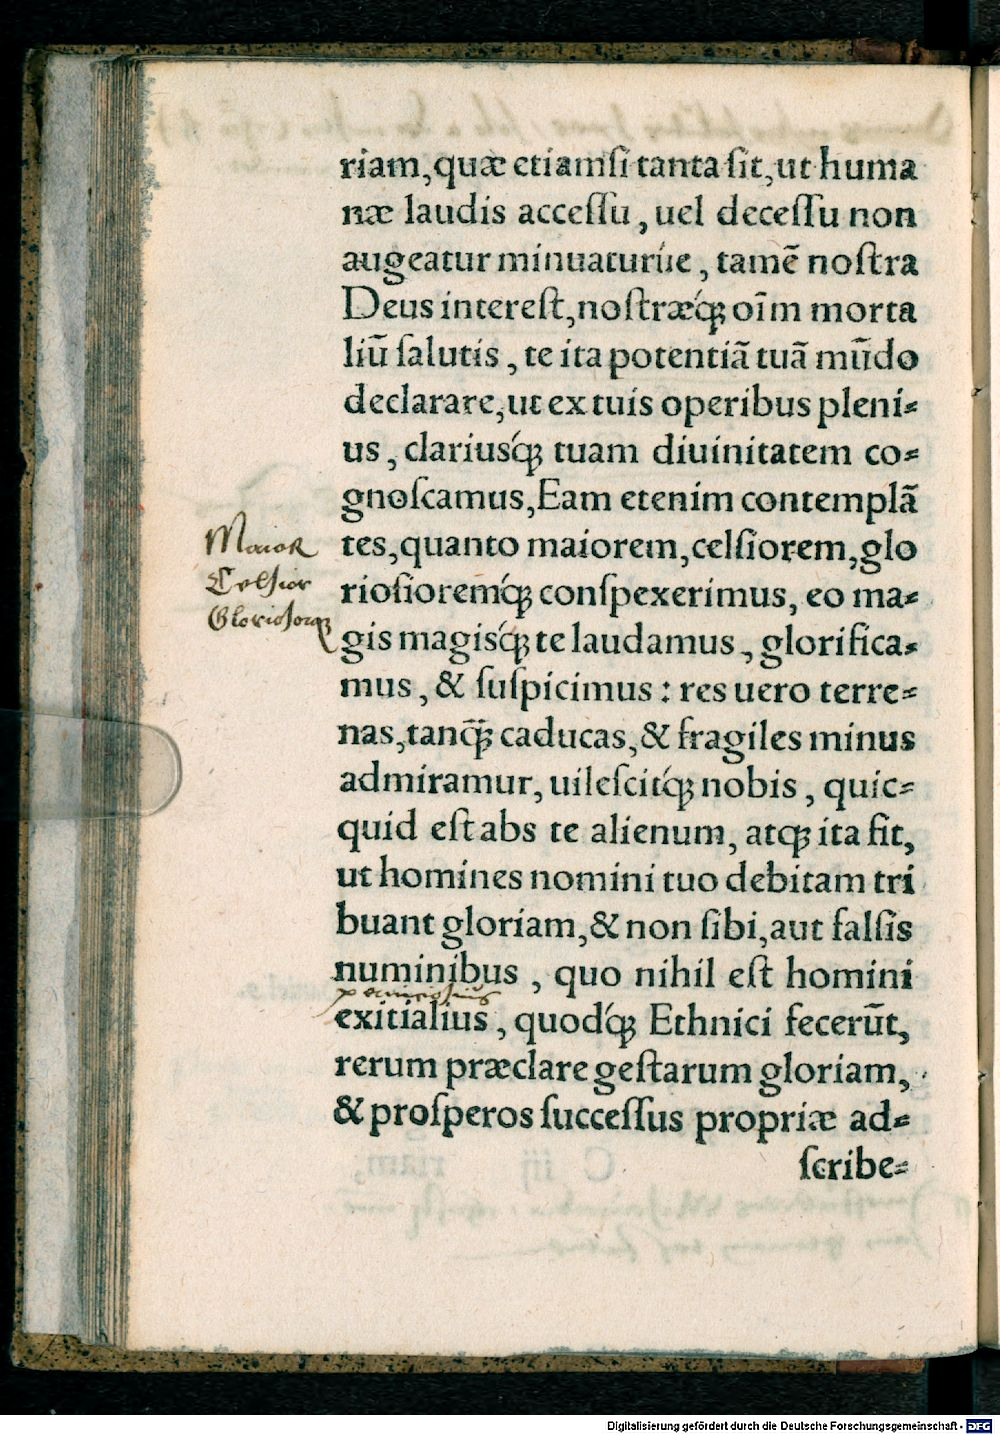 riam,quæ etiamſi tanta ſit,ut huma
næ laudis acceſſu, uel deceſſu non
augeatur minuaturúe, tamē noſtra
Deus intereſt,noſtræq́ꝫ oīm morta
liū ſalutis, te ita potentiā tuā mūdo
declarare,ut ex tuis operibus pleni-
us, clariusq́ꝫ tuam diuinitatem co-
gnoſcamus,Eam etenim contemplā
tes,quanto maiorem,celſiorem,glo
rioſioremq́ꝫ conſpexerimus, eo ma-
gis magisq́ꝫ te laudamus, glorifica-
mus, & ſuſpicimus: res uero terre-
nas,tanq̃ꝫ caducas,& fragiles minus
admiramur, uileſcitq́ꝫ nobis, quic-
quid eſt abs te alienum, atqꝫ ita fit,
ut homines nomini tuo debitam tri
buant gloriam,& non ſibi,aut falſis
numinibus, quo nihil eſt homini
pernicioſius
exitialius, quodq́ꝫ Ethnici fecerūt,
rerum præclare geſtarum gloriam,
& proſperos ſucceſſus propriæ ad-
ſcribe-
Maior
Celſior
Glorioſorqꝫ
Digitalisierung gefördert durch die Deutsche Forschungsgemeinschaft - DFG